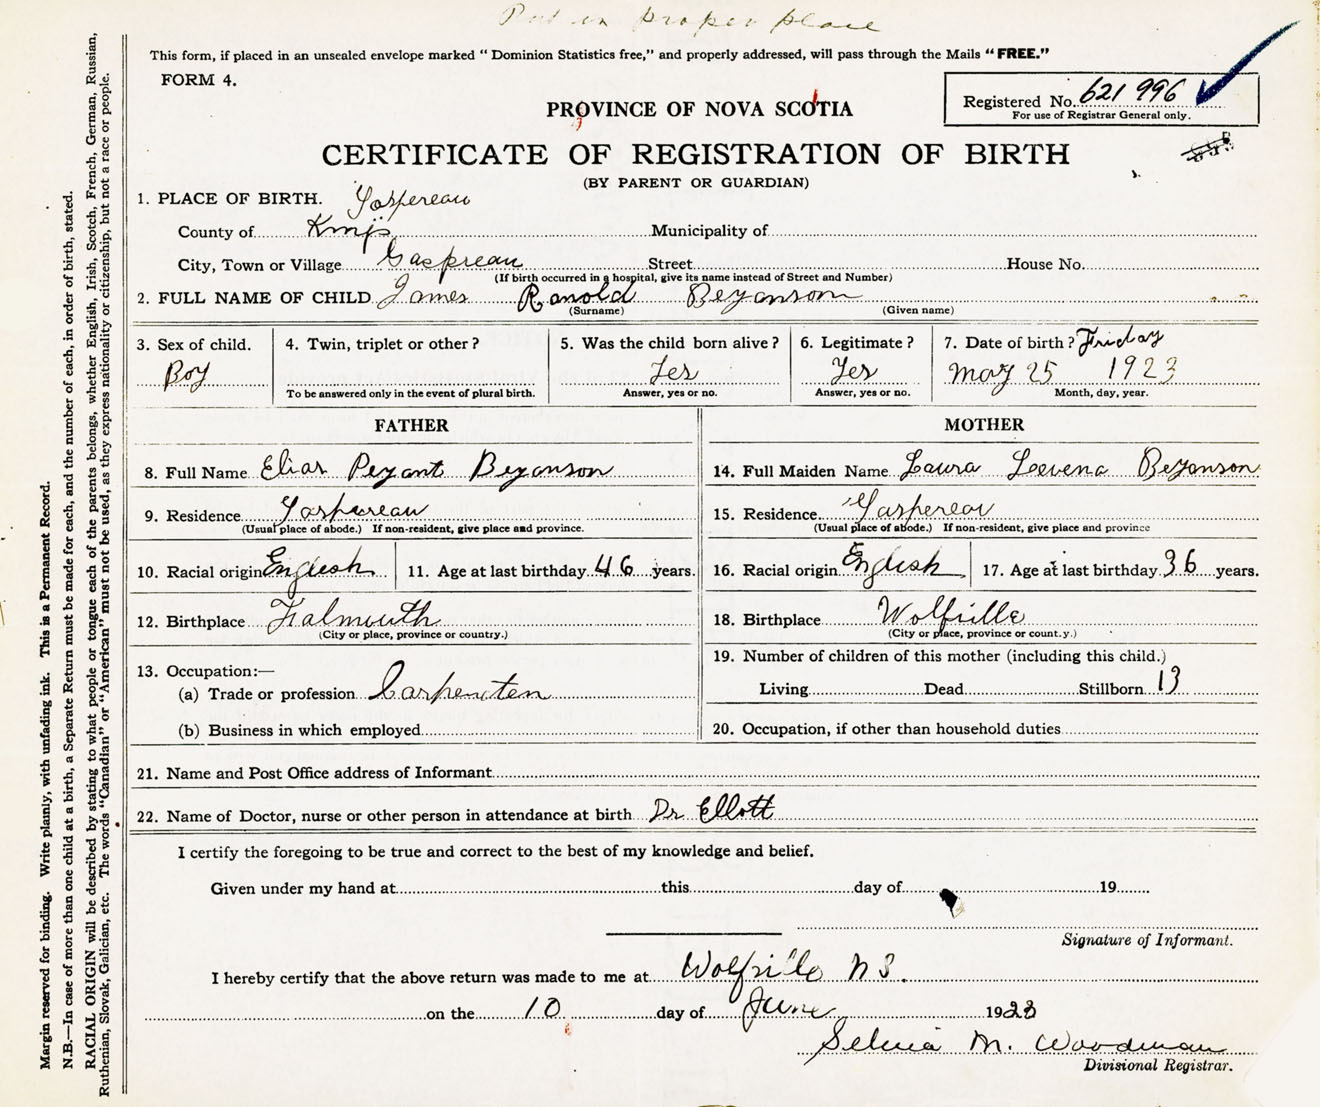 Put in proper place
This form, if placed in an unsealed envelope marked “ Dominion Statistics free,” and properly addressed, will pass through the Mails “ FREE.”
FORM 4.
Registered No. 621 996
For use of Registrar General only.
PROVINCE OF NOVA SCOTIA
CERTIFICATE OF REGISTRATION OF BIRTH
(BY PARENT OR GUARDIAN)
1. PLACE OF BIRTH. Gaspereau
County of Kings Municipality of
City, Town or Village Gaspreau Street House No.
(If birth occurred in a hospital, give its name instead of Street and Number)
2. FULL NAME OF CHILD James Ranold Bezanson
(Surname) (Given name)
3. Sex of child. Boy
4. Twin, triplet or other ?
To be answered only in the event of plural birth.
5. Was the child born alive ? Yes
Answer, yes or no.
6. Legitimate ? Yes
Answer, yes or no.
7. Date of birth ? Friday
May 25 1923
Month, day, year.
FATHER
8. Full Name Elias Bezanson
9. Residence Gaspereau
(Usual place of abode.) If non-resident, give place and province.
10. Racial origin English 11. Age at last birthday 46 years.
12. Birthplace Falmouth
(City or place, province or country.)
13. Occupation:—
(a) Trade or profession Carpenten
(b) Business in which employed
MOTHER
14. Full Maiden Name Laura Leevena Bezanson
15. Residence Gaspereau
(Usual place of abode.) If non-resident, give place and province
16. Racial origin English 17. Age at last birthday 36 years.
18. Birthplace Wolfville
(City or place, province or count.y.)
19. Number of children of this mother (including this child.)
Living Dead Stillborn 13
20. Occupation, if other than household duties
21. Name and Post Office address of Informant
22. Name of Doctor, nurse or other person in attendance at birth Dr Ellott
I certify the foregoing to be true and correct to the best of my knowledge and belief.
Given under my hand at this day of 19
Signature of Informant.
I hereby certify that the above return was made to me at Wolfville N S.
on the 10 day of June 1923
Selvia M. Woodman
Divisional Registrar.
Margin reserved for binding. Write plainly, with unfading ink. This is a Permanent Record.
N.B.—In case of more than one child at a birth, a Separate Return must be made for each, and the number of each, in order of birth, stated.
RACIAL ORIGIN will be described by stating to what people or tongue each of the parents belongs, whether English, Irish, Scotch, French, German, Russian,
Ruthenian, Slovak, Galician, etc. The words “Canadian” or “American” must not be used, as they express nationality or citizenship, but not a race or people.